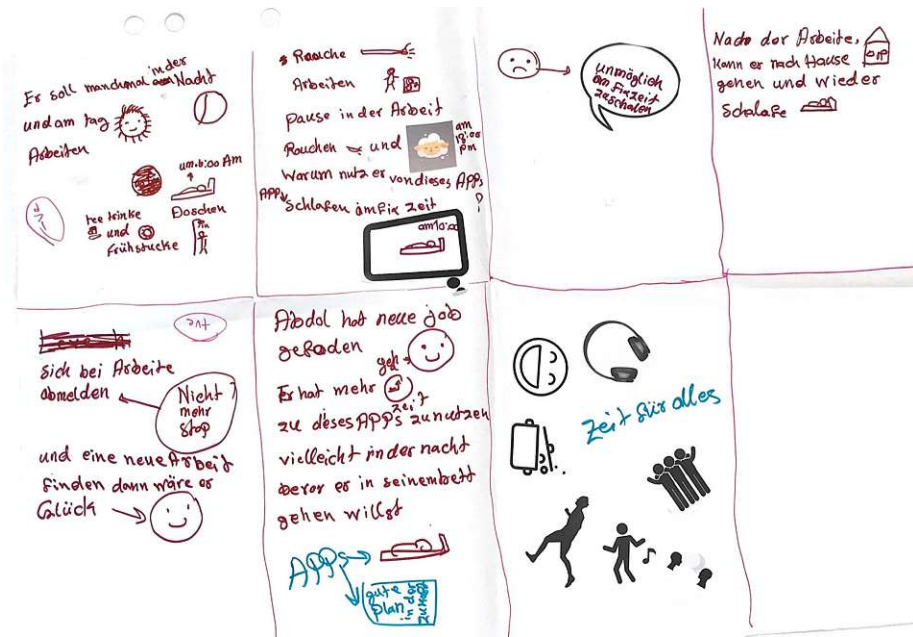 Er soll manchmal in der Nacht
und am tag
Arbeiten
um 6:00 Am
tee trinke
und
Frühstücke
Doschen
Rauche
Arbeiten
pause in der Arbeit
Rauchen und
am
18:00
pm
Warum nutz er von dieses APPs
?
APPs
Schlafen am Fix zeit
am 10:00
unmöglich
am Fix zeit
zu schalen
Nach der Arbeite,
kann er nach Hause
gehen und wieder
Schlafe
Sich bei Arbeite
abmelden
Nicht
mehr
Stop
und eine neue Arbeit
finden dann wäre er
Glück
Abdol hat neue job
gefaden
Er hat mehr
zeit
zu deses APPs zu nutzen
vielleicht in der nacht
beror er in seinem bett
gehen willst
APPs
gute
plan
in der
Zeit für alles